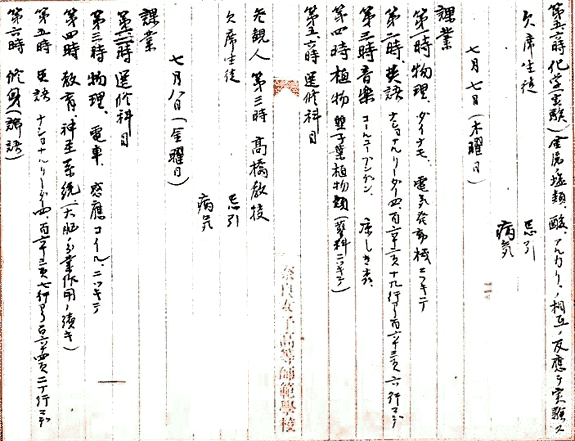 第五六時 化学(実験) 金属ノ塩類、酸、アルカリノ相互ノ反應ヲ実験ス
欠席生徒
忌引
病気
七月七日(木曜日)
課業
第一時 物理、ダイナモ、電気発動機ニツキテ
第二時、英語 ナショナルリーダー四、百六十二頁十九行ヨリ百六十三頁六行マデ
第三時 音楽 コールユーブンゲン、涼しき
第四時 植物 双子葉植物類(ニツキテ)
第五六時 選修科目
参観人 第三時 高橋教授
欠席生徒
忌引
病気
七月八日(金曜日)
課業
第一二時 選修科目
第三時 物理、電車、感應コイルニツキテ
第四時 教育、神圣系統(大脳ノ分業作用ノ續キ)
第五時 英語 ナショナルリーダー四、百六十三頁七行ヨリ百六十四頁二十行マデ
第六時 修身(講話)
奈良女子高等師範學校